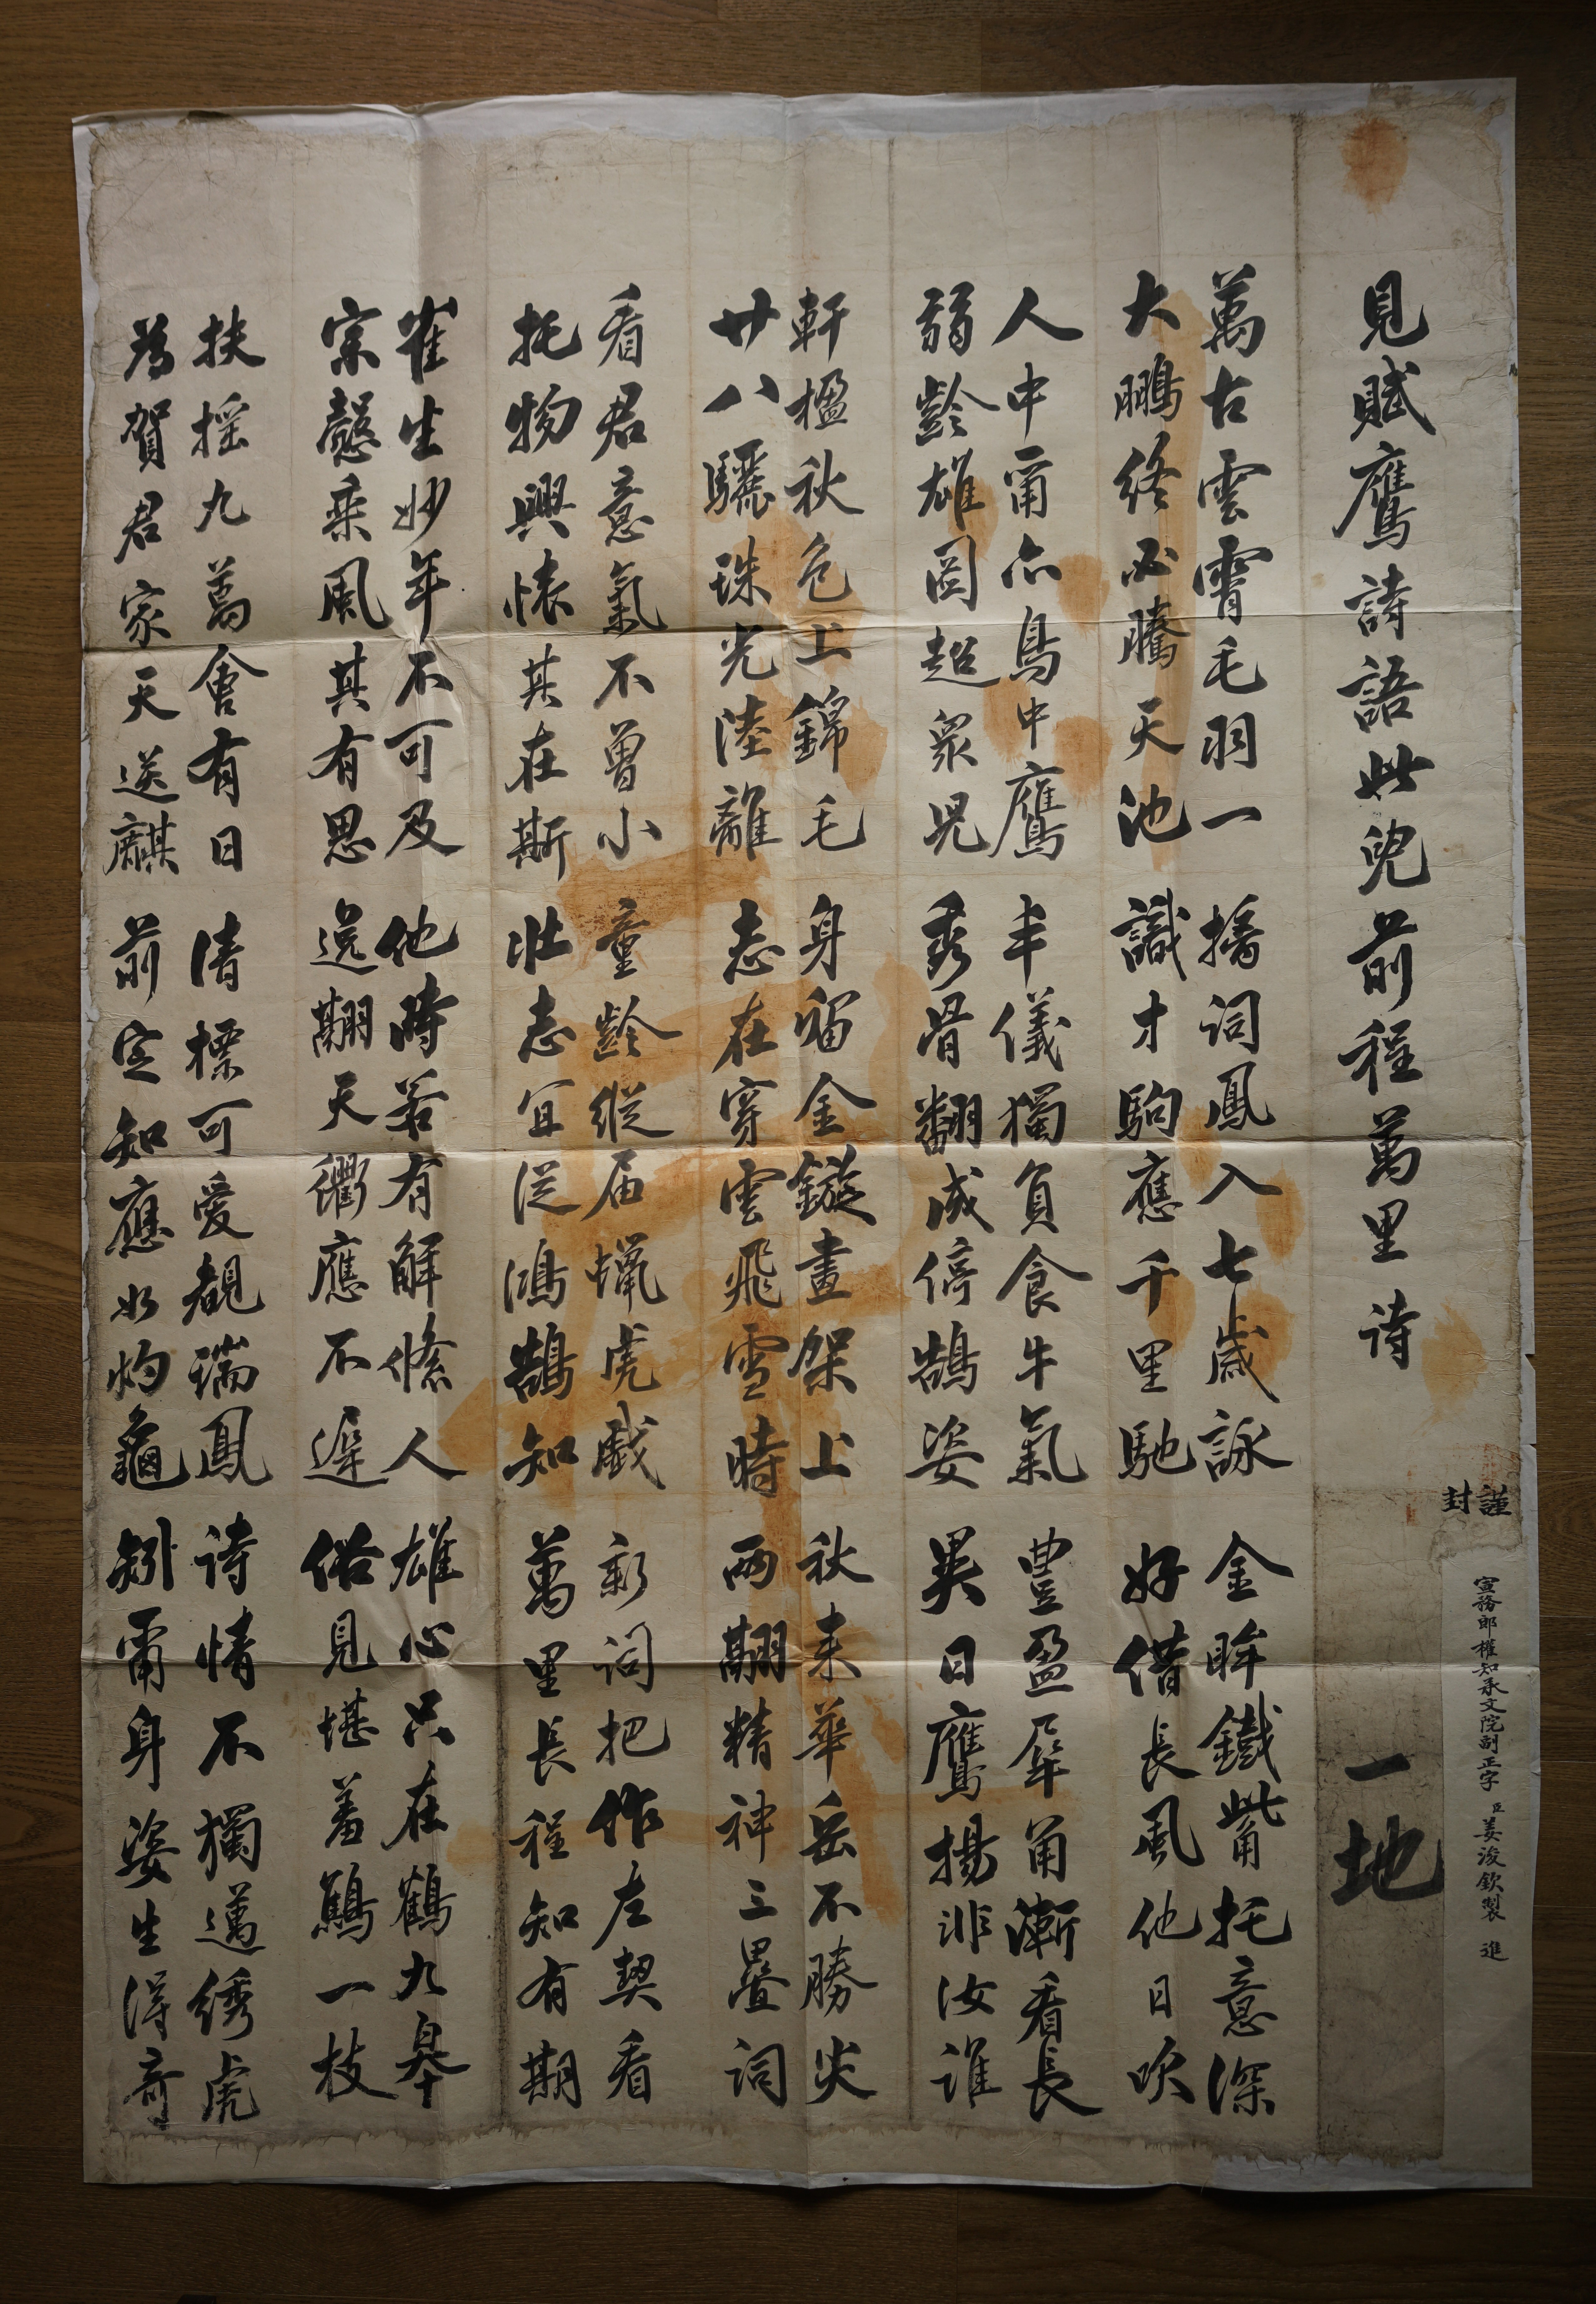 謹封
宣務郎權知承文院副正字臣姜浚欽製 進
一地
見賦鷹詩語此兒前程萬里 詩
萬古雲霄毛羽一 摛詞鳳入七歲詠 金眸鐵觜托意深
大鵬終必騰天池 識才駒應千里馳 好借長風他日吹
人中爾亦鳥中鷹 丰儀獨負食牛氣 豊盈犀角漸看長
弱齡雄圖超衆兒 秀骨翻成停鵠姿 異日鷹揚非汝誰
軒楹秋色上錦毛 身留金鏇畫架上 秋來華岳不勝尖
廿八驪珠光陸離 志在穿雲飛雪時 兩翮精神三疊詞
看君意氣不曾小 童齡縱届蠟虎戱 新詞把作左契看
托物興懷其在斯 壯志宜從鴻鵠知 萬里長程知有期
崔生妙年不可及 他時若有解絛人 雄心只在鶴九皋
宗慤乘風其有思 逸翮天衢應不遲 俗見堪羞鷦一枝
扶搖九萬會有日 清標可愛覩瑞鳳 詩情不獨邁綉虎
爲賀君家天送麒 前定知應如灼龜 矧爾身姿生得奇